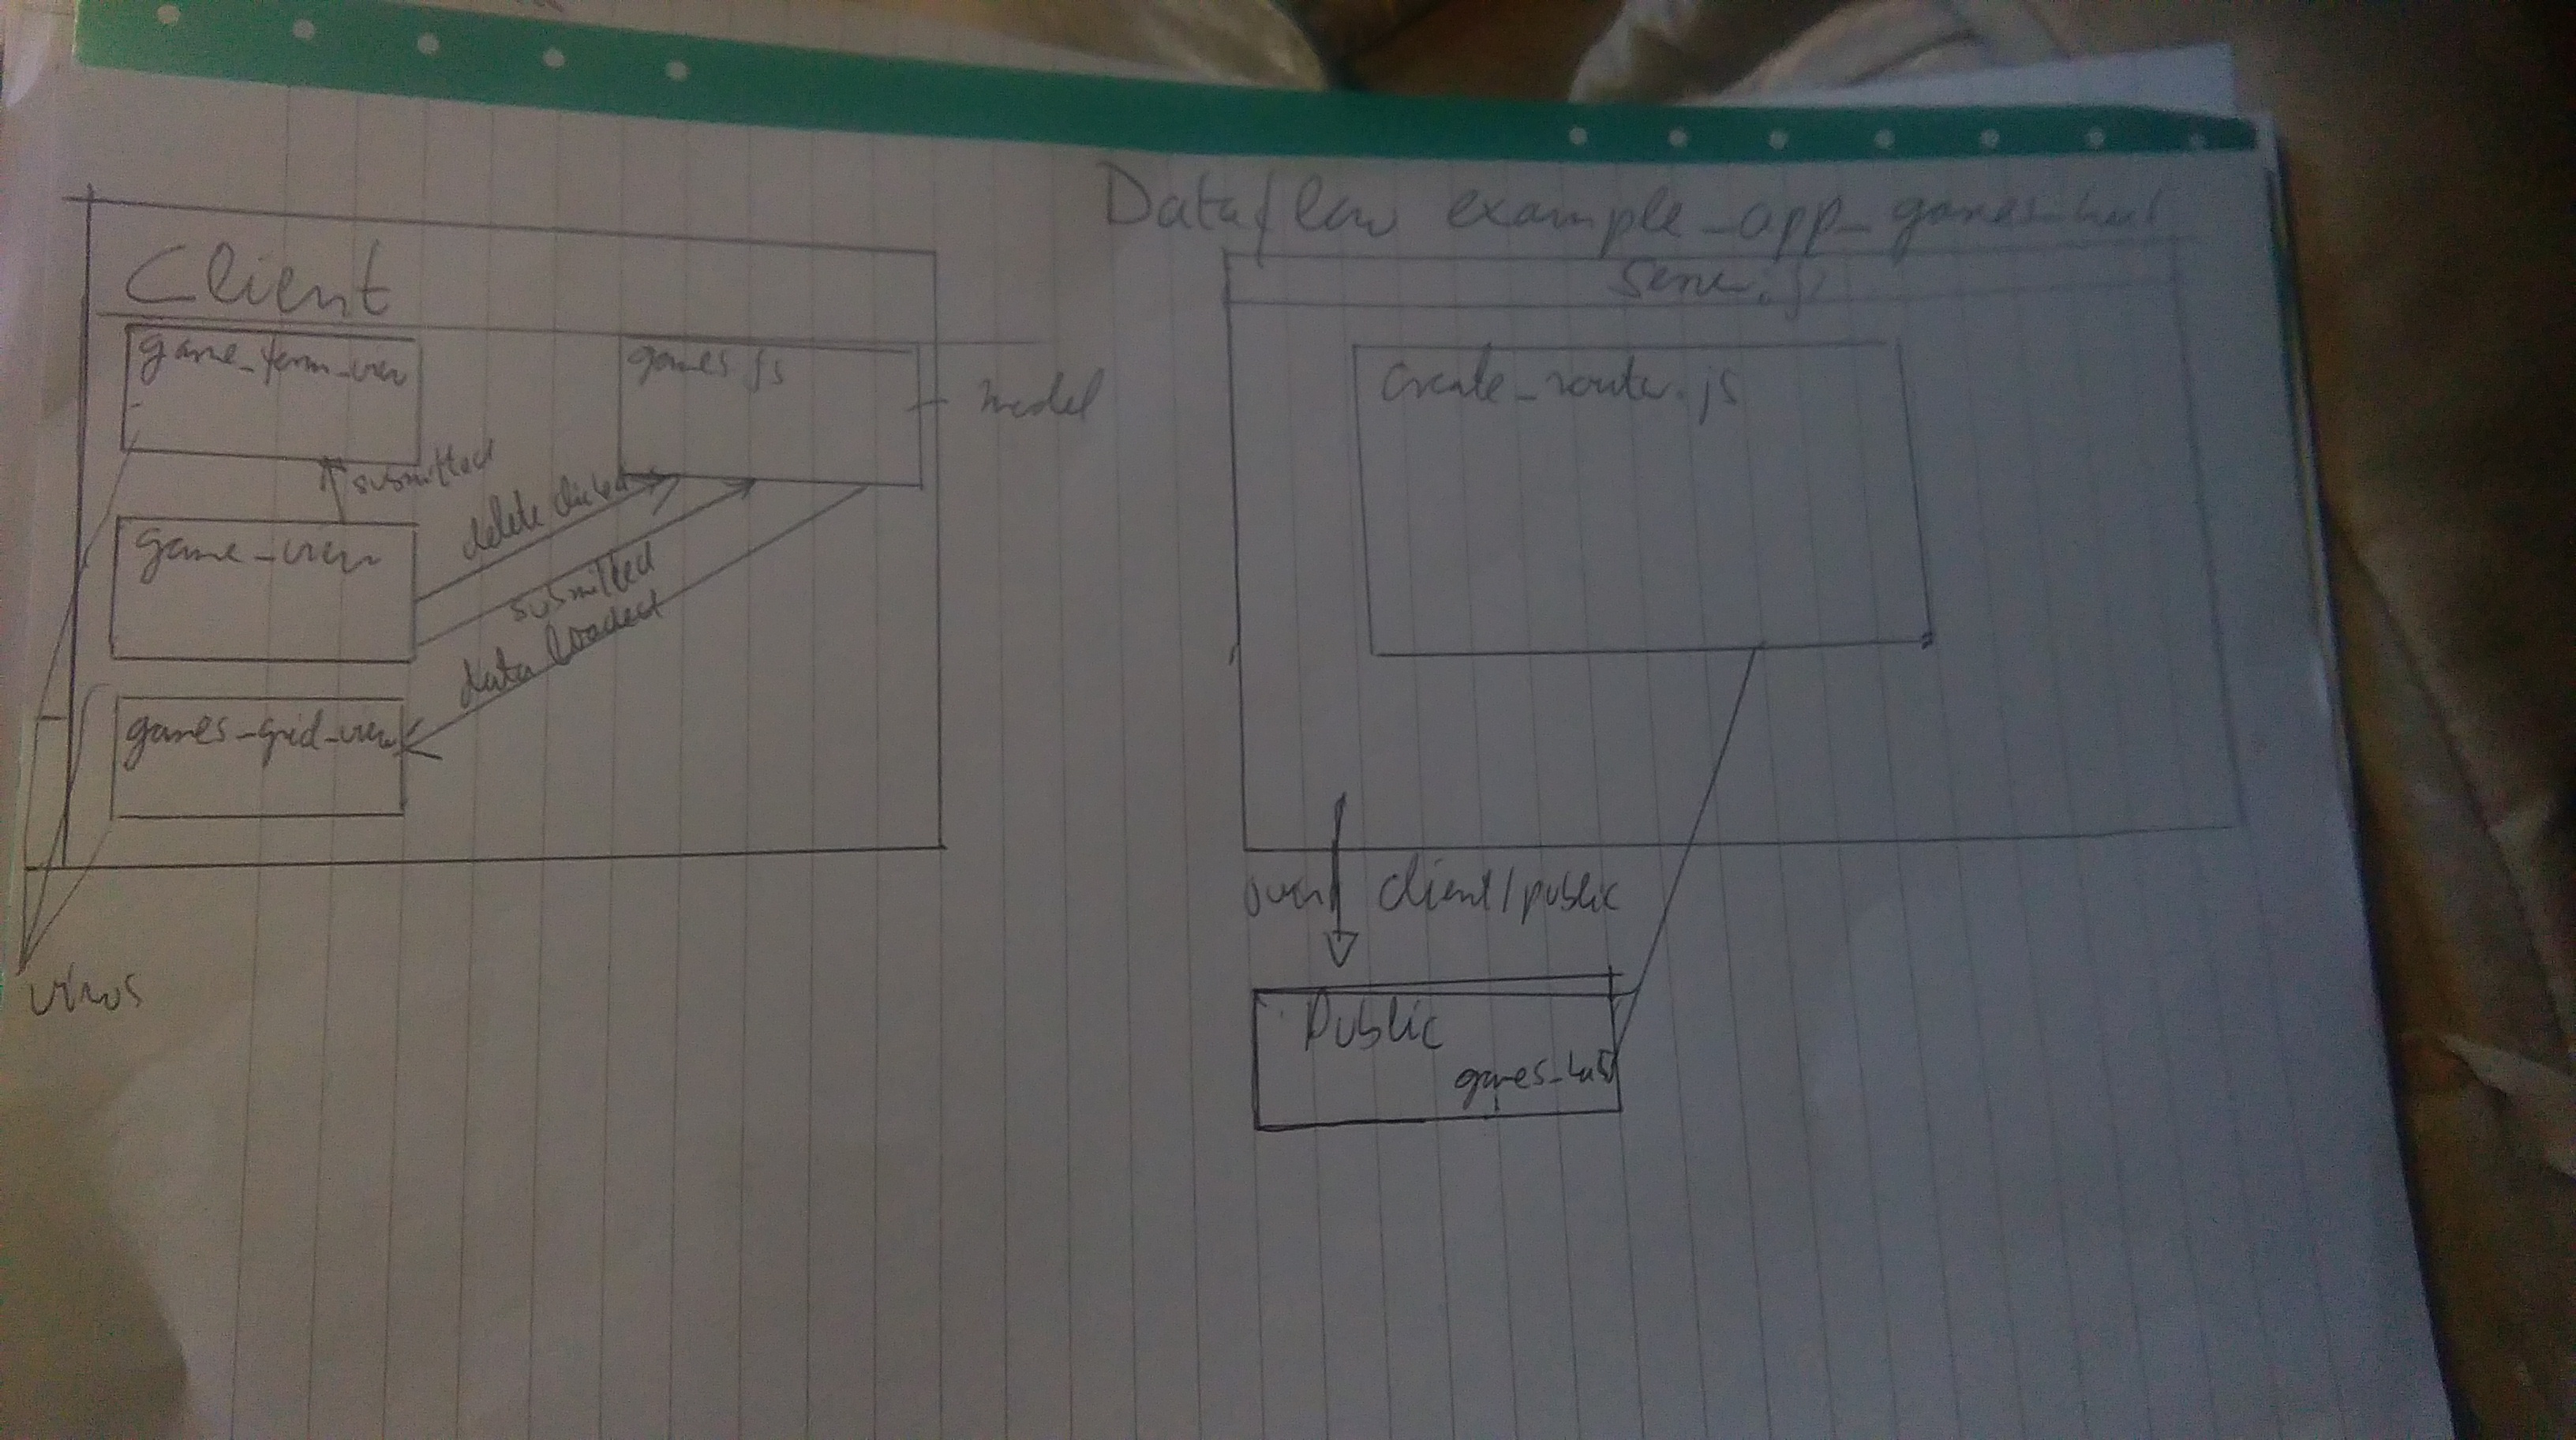 Dataflow example_app_games_hub
Client
game_form_view
games.js
model
submitted
delete clicked
game_view
submitted
data loaded
games_grid_view
views
server.js
create_router.js
over client/public
Public
games_hub